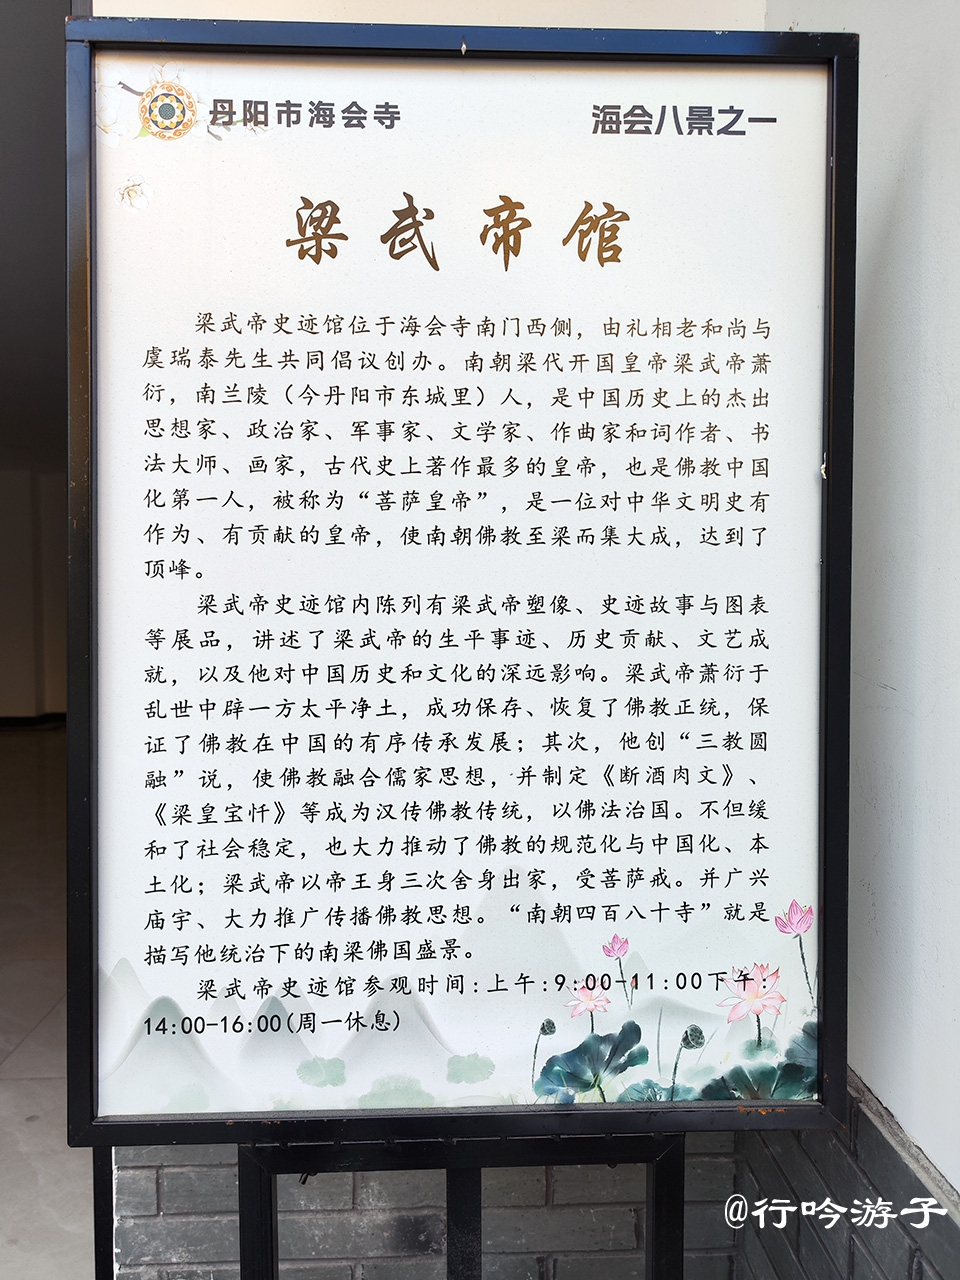 丹阳市海会寺
海会八景之一
梁武帝馆
梁武帝史迹馆位于海会寺南门西侧，由礼相老和尚与
虞瑞泰先生共同倡议创办。南朝梁代开国皇帝梁武帝萧
衍，南兰陵（今丹阳市东城里）人，是中国历史上的杰出
思想家、政治家、军事家、文学家、作曲家和词作者、书
法大师、画家，古代史上著作最多的皇帝，也是佛教中国
化第一人，被称为“菩萨皇帝”，是一位对中华文明史有
作为、有贡献的皇帝，使南朝佛教至梁而集大成，达到了
顶峰。
梁武帝史迹馆内陈列有梁武帝塑像、史迹故事与图表
等展品，讲述了梁武帝的生平事迹、历史贡献、文艺成
就，以及他对中国历史和文化的深远影响。梁武帝萧衍于
乱世中辟一方太平净土，成功保存、恢复了佛教正统，保
证了佛教在中国的有序传承发展；其次，他创“三教圆
融”说，使佛教融合儒家思想，并制定《断酒肉文》、
《梁皇宝忏》等成为汉传佛教传统，以佛法治国。不但缓
和了社会稳定，也大力推动了佛教的规范化与中国化、本
土化；梁武帝以帝王身三次舍身出家，受菩萨戒。并广兴
庙宇、大力推广传播佛教思想。“南朝四百八十寺”就是
描写他统治下的南梁佛国盛景。
梁武帝史迹馆参观时间:上午:9:00-11:00下午:
14:00-16:00(周一休息)
@行吟游子